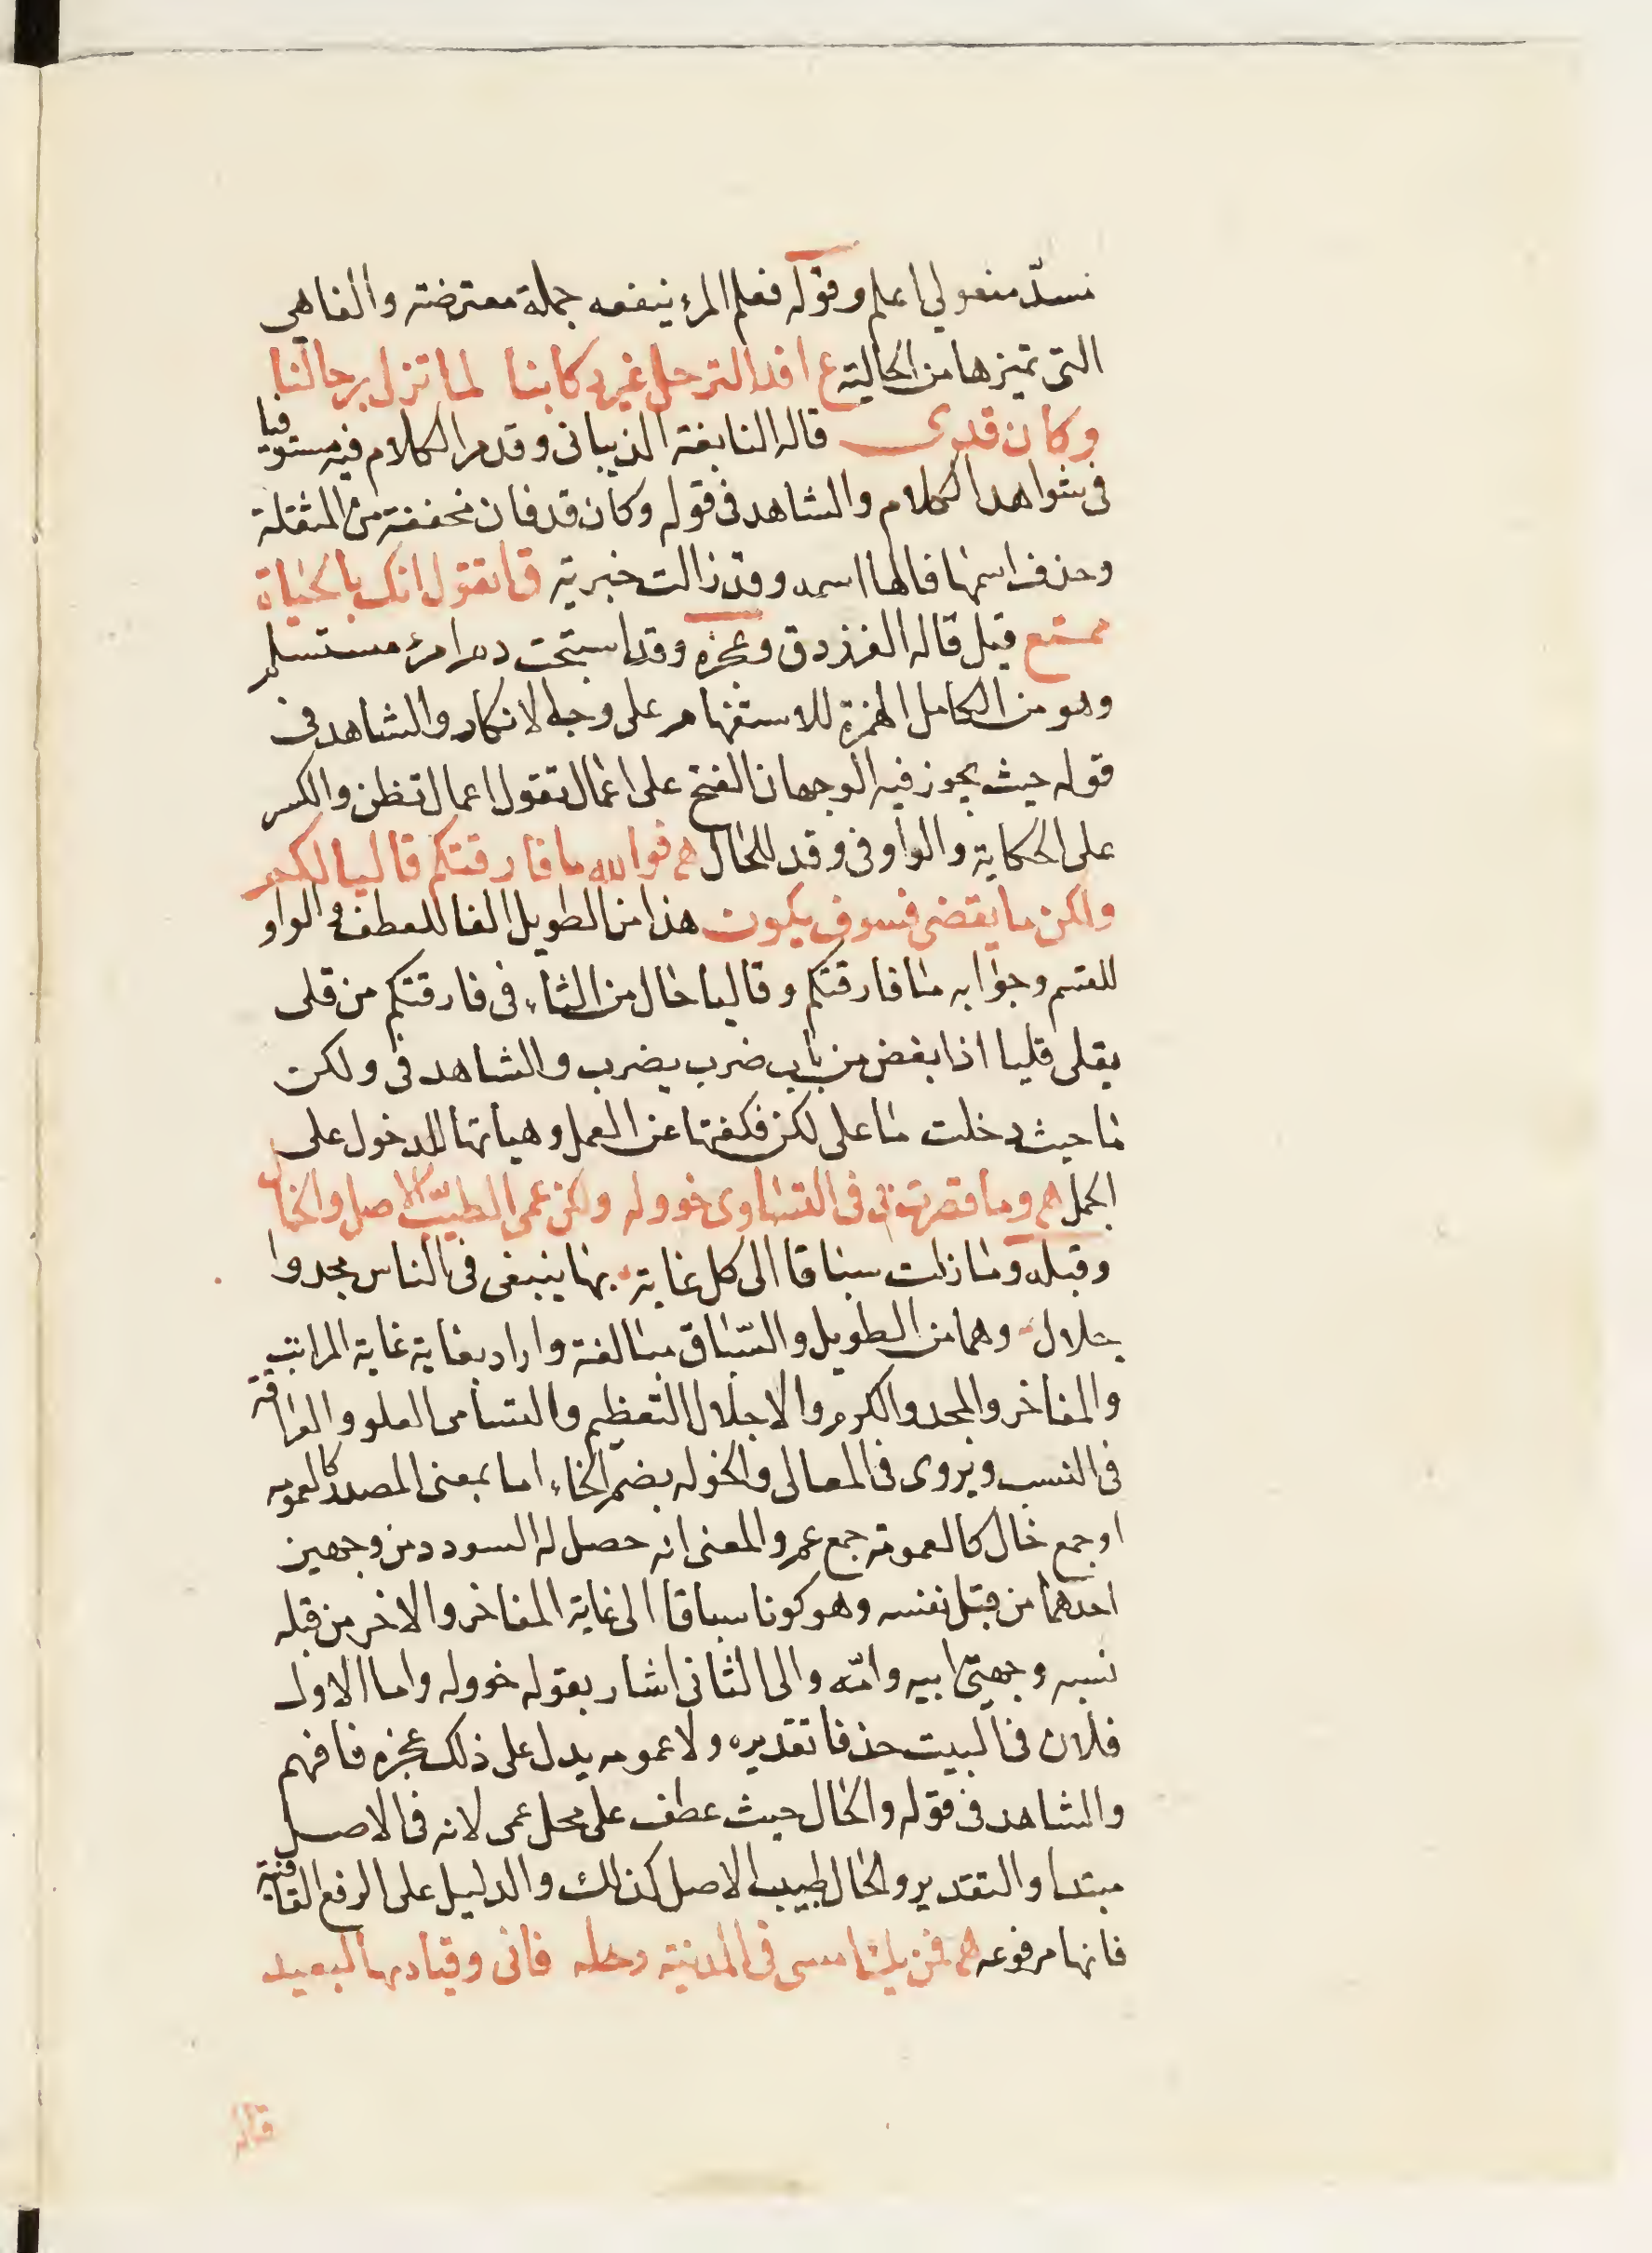 مسدّ مفعولي اعلم وقوله فعلم المرء ينفعه جملة معترضة والفا هي
التى تميزها من الحالية ع افد الترحل غير ركابنا لما تزل برحالنا
وكان قدى قاله النابغة الذبيانى وقد مر الكلام فيه مستوفيا
فى شواهد الكلام والشاهد فى قوله وكأن قد فان مخففة من المثقلة
وحذف اسمها فالها اسمه وقد زالت خبرية ق اتقول انك بالحياة
ممتع قيل قاله الفرزدق وعجزه وقد استبحت دم امرئ مستسلم
وهو من الكامل الهمزة للاستفهام على وجه الانكار والشاهد فى
قوله حيث يجوز فيه الوجهان الفتح على اعمال تقول اعمال تظن والكسر
على الحكاية والواو فى وقد للحال هع فوالله ما فارقتكم قاليا لكم
ولكن ما يقضى فسوف يكون هذا من الطويل الفا للعطف والواو
للقسم وجوابه ما فارقتكم وقاليا حال من التاء فى فارقتكم من قلى
يقلى قليا اذا بغض من باب ضرب يضرب والشاهد فى ولكن
ما حيث دخلت ما على لكن فكفتها عن العمل وهياتها للدخول على
الجمل هع وما قصرت بى فى التسامى خووله ولكن عمى الطيّب الاصل والخال
وقبله وما زلت سباقا الى كل غاية بها ينبغى فى الناس مجد وا
جلال وهما من الطويل والسّباق مبالغة واراد بغاية غاية المراتب
والمفاخر والمجد والكرم والاجلال التعظيم والتسامى العلو والعراقة
فى النسب ويروى فى المعالى والخوله بضم الخاء اما بمعنى المصدر كالعمومه
او جمع خال كالعمومة جمع عم والمعنى انه حصل له السودد من وجهين
احدهما من قبل نفسه وهو كونا سباقا الى غاية المفاخر والاخر من قبله
نسبه وجهتى ابيه وامّه والى الثانى اشار بقوله خووله واما الاول
فلان فى البيت حذفا تقديره ولا عمومه يدل على ذلك عجزه فافهم
والشاهد فى قوله والخال حيث عطف على محل عمى لانه فى الاصل
مبتدا والتقدير والخال طيب الاصل كذلك والدليل على الرفع القافية
فانها مرفوعه هع فمن يك امسى فى المدينة رحله فانى وقيار بها لبعيد
قاله